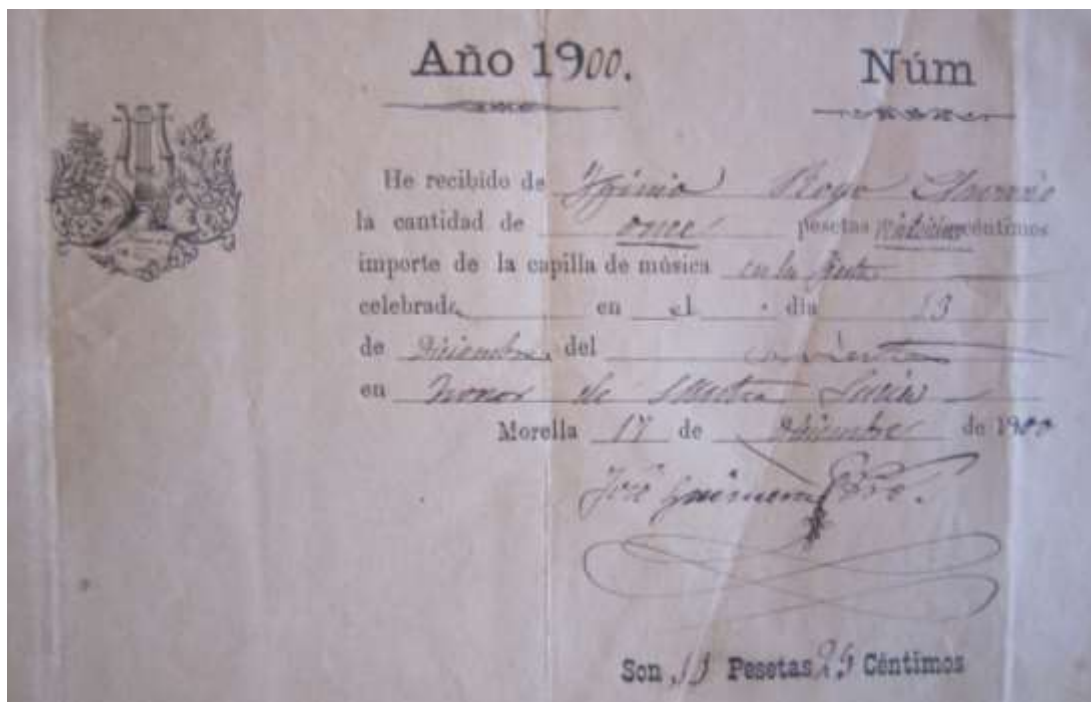 Año 1900. Núm
He recibido de Royo
la cantidad de once pesetas céntimos
importe de la capilla de música en la fiesta
celebrada en el dia 13
de Diciembre del corriente
en honor de Santa Lucia
Morella 17 de Diciembre de 1900
José
Son Pesetas 25 Céntimos